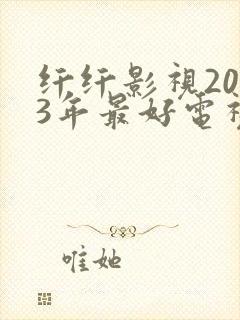 纤纤影視20
3年最好電視
唯她